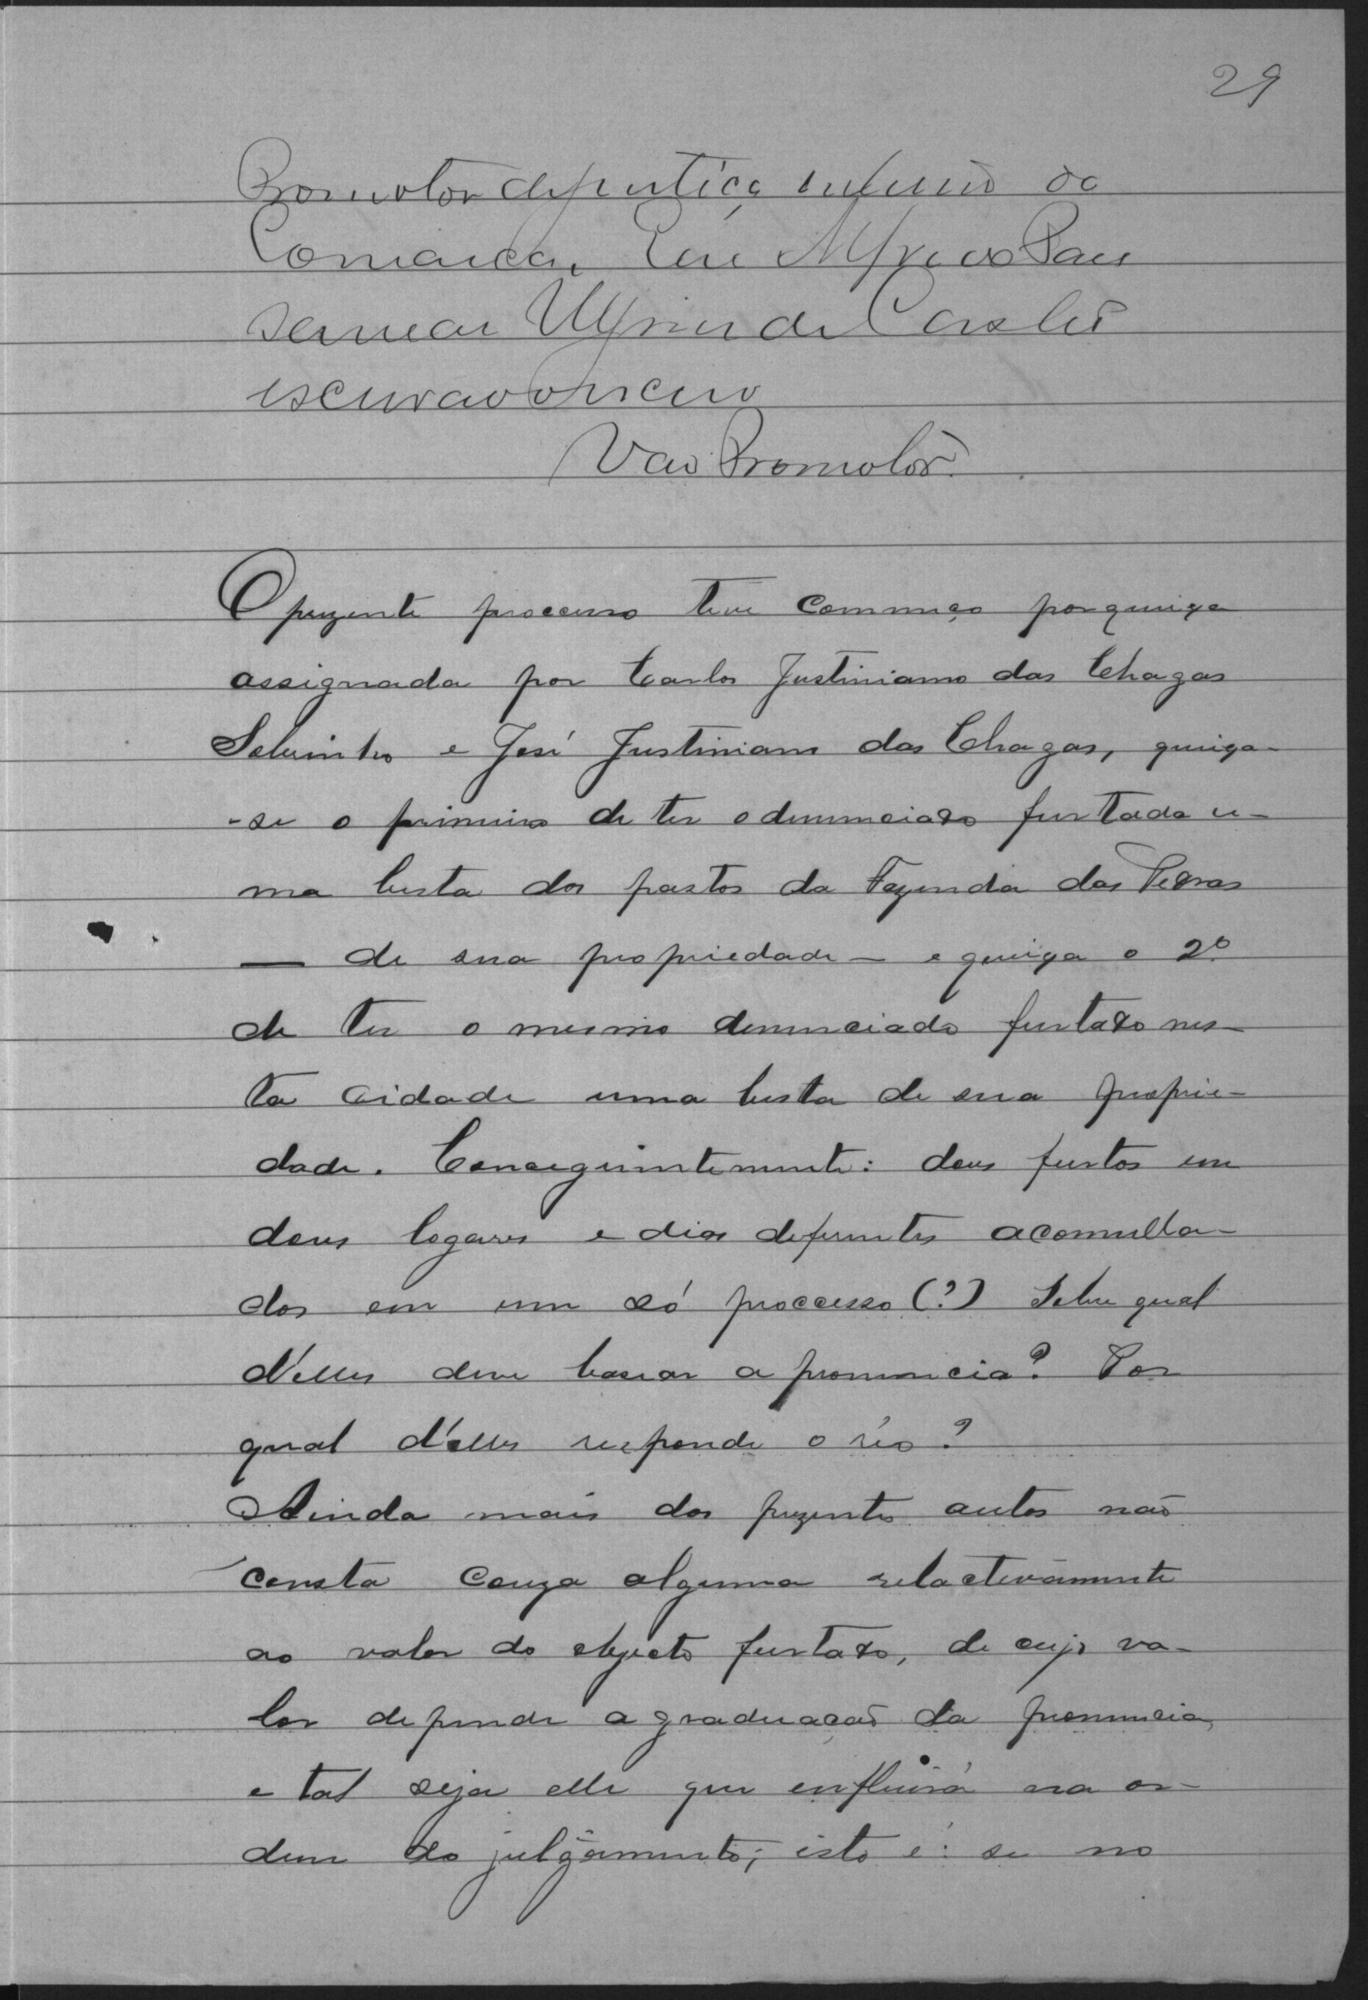 29
Promotor de justiça interino da
Comarca, Eu Alfredo
de Castro
escrivão o escrevo
Vao Promotor
O prezente processo teve commeço por queixa
assignada por Carlos Justiniano das Chagas
Sobrinho e José Justiniano das Chagas, queixa-
-se o primeiro de ter o denunciado furtado u-
ma besta dos pastos da Fazenda das Pedras
— de sua propriedade — e queixa o 2º
de ter o mesmo denunciado furtado nes-
ta cidade uma besta de sua proprie-
dade. Conseguintemente: dous furtos em
dous logares e dias deferentes acomulla-
dos em um só processo (?) Sobre qual
d'elles deve basear a pronuncia? Por
qual d'elles responde o réo?
Ainda mais dos prezentes autos não
consta couza alguma relactivamente
ao valor do objecto furtado, de cujo va-
lor depende a graduação da pronuncia,
e tal seja elle que enfluirá na or-
dem do julgamento; isto é: se no